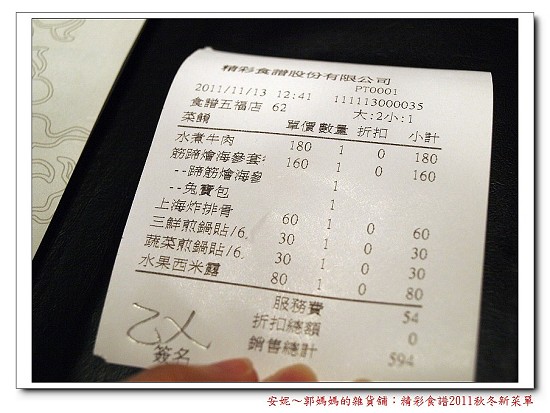 精彩食譜股份有限公司
PT0001
2011/11/13 12:41 111113000035
食譜五福店 62 大:2小:1
菜餚 單價數量 折扣 小計
水煮牛肉 180 1 0 180
筋蹄燴海參套 160 1 0 160
--蹄筋燴海參 1
--兔寶包 1
上海炸排骨 60 1 0 60
三鮮煎鍋貼/6. 30 1 0 30
蔬菜煎鍋貼/6. 30 1 0 30
水果西米露 80 1 0 80
服務費 54
折扣總額 0
銷售總計 594
簽名
安妮～郭媽媽的雜貨舖：精彩食譜2011秋冬新菜單